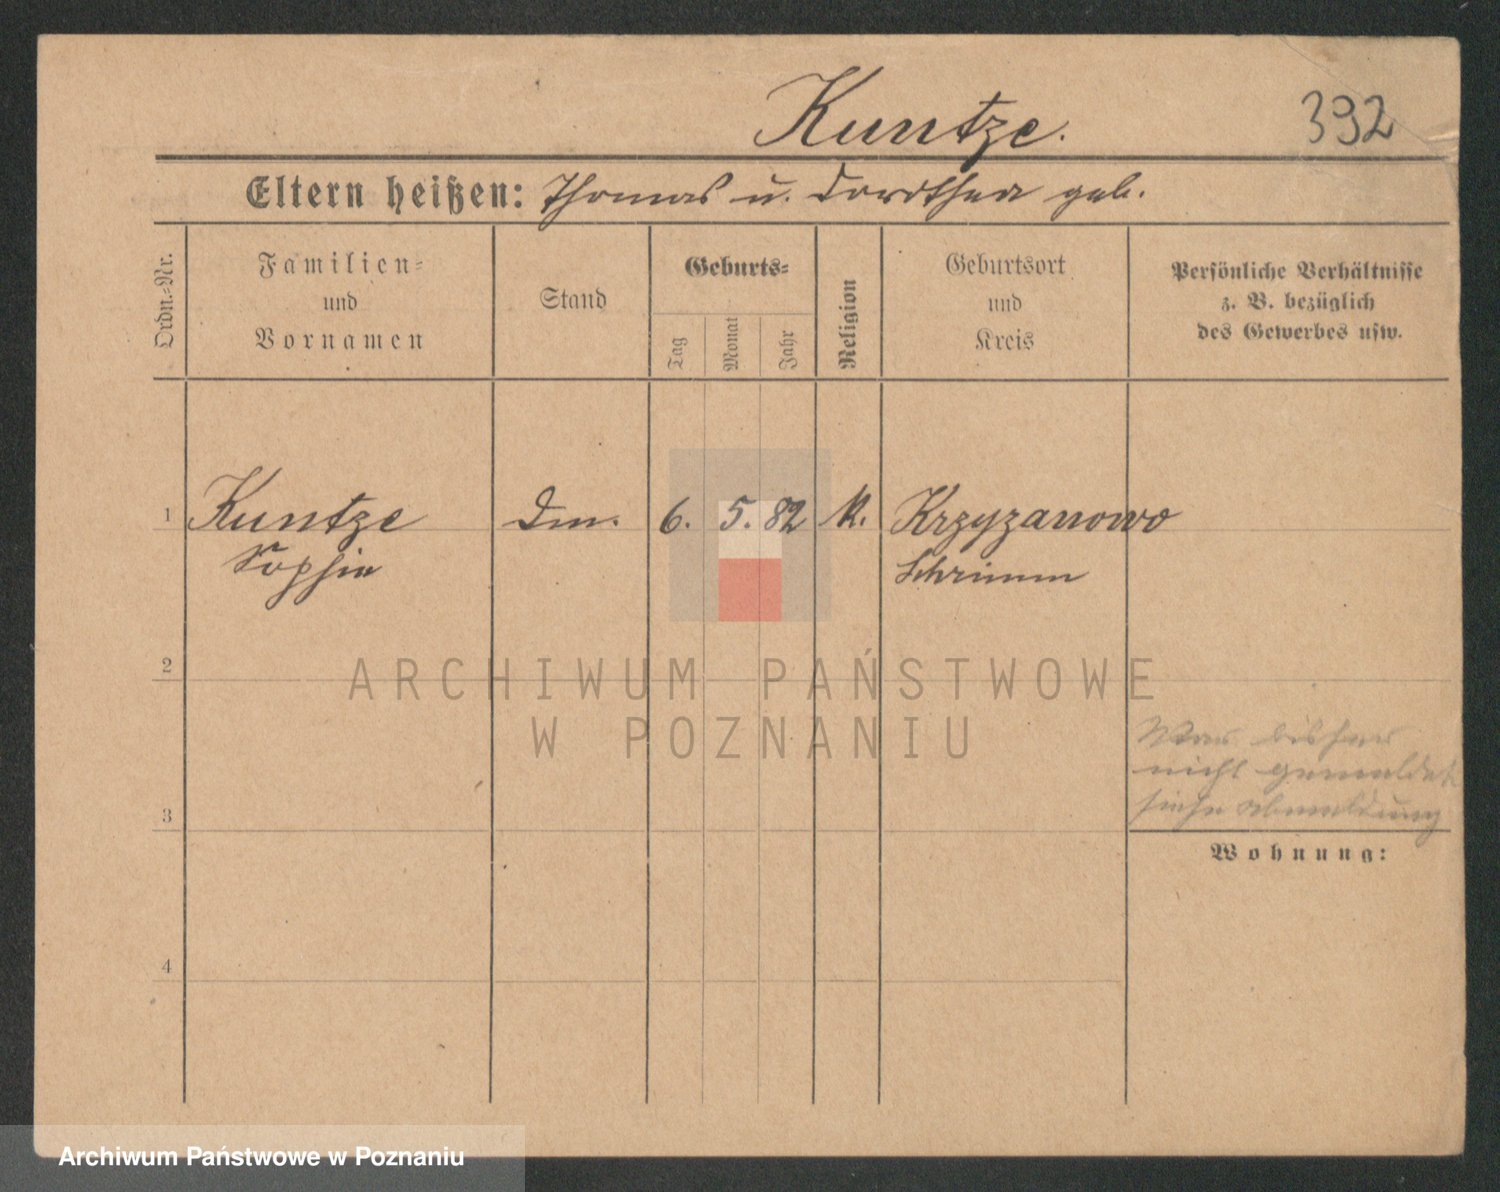 Kuntze.
392
Eltern heißen: Thomas u. Dorothea geb.
Ordn.-Nr.
Familien-
und
Vornamen
Stand
Geburts-
Tag
Monat
Jahr
Religion
Geburtsort
und
Kreis
Persönliche Verhältnisse
z. B. bezüglich
des Gewerbes usw.
1 Kuntze 6. 5. 82 K. Krzyzanowo
Sophie Schrimm
2
ARCHIWUM PAŃSTWOWE
W POZNANIU
War bisher
nicht gemeldet
siehe Abmeldung
3
Wohnung:
4
Archiwum Państwowe w Poznaniu